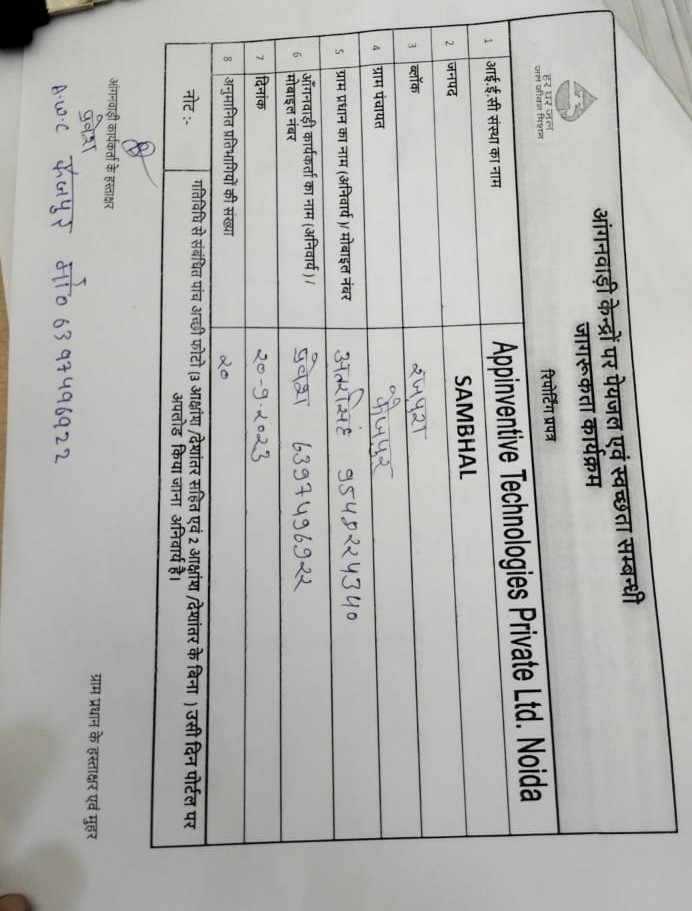 हर घर जल
जल जीवन मिशन
आंगनवाड़ी केन्द्रों पर पेयजल एवं स्वच्छता सम्बन्धी
जागरूकता कार्यक्रम
रिपोर्टिंग प्रपत्र
1 आई.ई.सी संस्था का नाम Appinventive Technologies Private Ltd. Noida
2 जनपद SAMBHAL
3 ब्लॉक रजपुरा
4 ग्राम पंचायत कैजपुर
5 ग्राम प्रधान का नाम (अनिवार्य )/ मोबाइल नंबर
6 आँगनवाड़ी कार्यकर्ता का नाम (अनिवार्य )/
मोबाइल नंबर प्रवेश 6397496922
7 दिनांक 20-9-2023
8 अनुमानित प्रतिभागियों की संख्या 20
नोट :- गतिविधि से संबंधित पांच अच्छी फोटो (3 आक्षांश /देशांतर सहित एवं 2 आक्षांश /देशांतर के बिना ) उसी दिन पोर्टल पर
अपलोड किया जाना अनिवार्य है।
आंगनवाड़ी कार्यकर्ता के हस्ताक्षर
ग्राम प्रधान के हस्ताक्षर एवं मुहर
प्रवेश
A.W.C कैजपुर मो० 6397496922